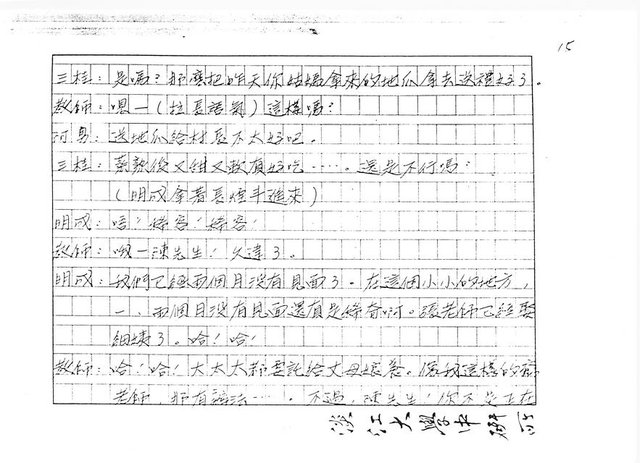 15
三桂：是嗎？那麼把昨天你姑媽拿來的地瓜拿去送禮好了。
教師：嗯—（拉長語氣）這樣嗎？
阿勇：送地瓜給村長不太好吧。
三桂：蒸熟後又甜又軟頗好吃……。還是不行嗎？
（明成拿著長煙斗進來）
明成：唔！稀客！稀客！
教師：哦—陳先生！久違了。
明成：我們已經兩個月沒有見面了。在這個小小的地方，
一、兩個月沒有見面還真是稀奇啊。張老師已經娶
細姨了。哈！哈！
教師：哈！哈！大太太都委託給丈母娘養。像我這樣的窮
老師，那有辦法……。不過，陳先生！你不是正在
淡江大學中研所